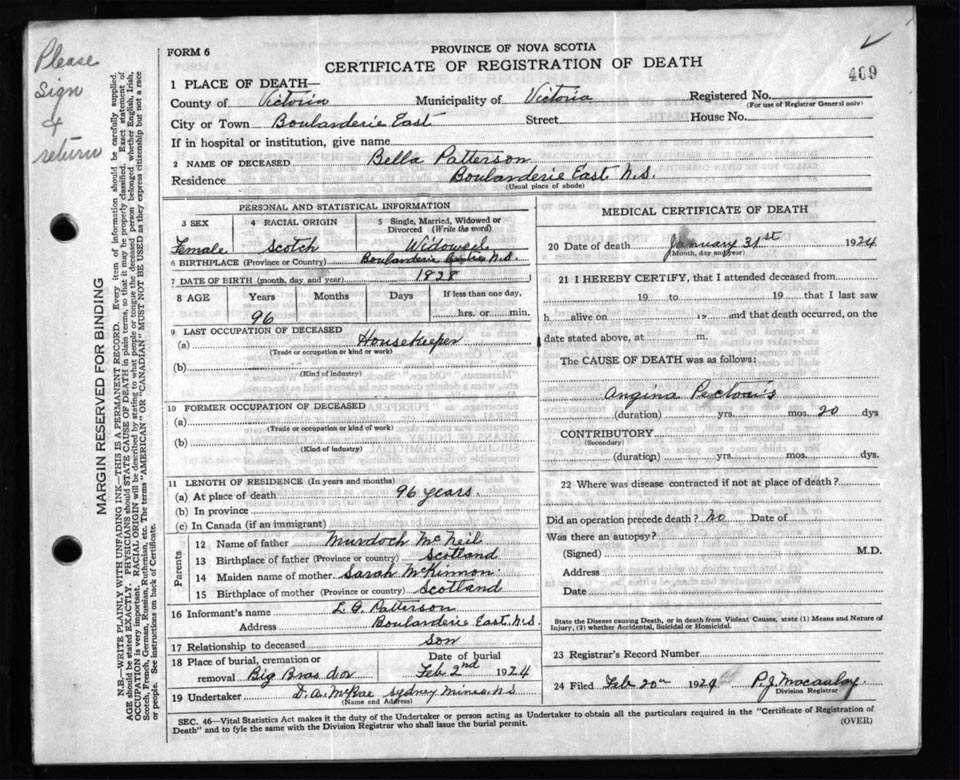 Please
Sign
&
return
FORM 6
PROVINCE OF NOVA SCOTIA
CERTIFICATE OF REGISTRATION OF DEATH
469
1 PLACE OF DEATH—
County of Victoria Municipality of Victoria Registered No.
(For use of Registrar General only)
City or Town Boularderie East Street House No.
If in hospital or institution, give name
2 NAME OF DECEASED Bella Patterson
Residence Boularderie East N.S.
(Usual place of abode)
PERSONAL AND STATISTICAL INFORMATION
3 SEX 4 RACIAL ORIGIN 5 Single, Married, Widowed or Divorced (Write the word)
Female Scotch Widowed
6 BIRTHPLACE (Province or Country) Boularderie N.S.
7 DATE OF BIRTH (month, day, and year) 1828
8 AGE Years Months Days If less than one day,
96 hrs. or min.
9 LAST OCCUPATION OF DECEASED
(a) Housekeeper
(Trade or occupation or kind or work)
(b)
(Kind of industry)
10 FORMER OCCUPATION OF DECEASED
(a)
(Trade or occupation or kind of work)
(b)
(Kind of industry)
11 LENGTH OF RESIDENCE (In years and months)
(a) At place of death 96 years.
(b) In province
(c) In Canada (if an immigrant)
Parents
12 Name of father Murdoch McNeil
13 Birthplace of father (Province or country) Scotland
14 Maiden name of mother Sarah McKinnon
15 Birthplace of mother (Province or country) Scotland
16 Informant's name L G Patterson
Address Boularderie East, N.S.
17 Relationship to deceased son
18 Place of burial, cremation or removal Big Bras dor
Date of burial Feb 2nd 1924
19 Undertaker D. A. McRae Sydney Mines N.S
(Name and Address)
MEDICAL CERTIFICATE OF DEATH
20 Date of death January 31st 1924
(Month, day and year)
21 I HEREBY CERTIFY, that I attended deceased from
19 to 19 that I last saw
h alive on 19 and that death occurred, on the
date stated above, at m.
The CAUSE OF DEATH was as follows:
Angina Pectoris
(duration) yrs. mos. 20 dys
CONTRIBUTORY
(Secondary)
(duration) yrs. mos. dys.
22 Where was disease contracted if not at place of death?
Did an operation precede death? No Date of
Was there an autopsy?
(Signed) M.D.
Address
Date
State the Disease causing Death, or in death from Violent Causes, state (1) Means and Nature of
Injury, (2) whether Accidental, Suicidal or Homicidal.
23 Registrar's Record Number
24 Filed Feb 20th 1924 P. J. Macaulay
Division Registrar
SEC. 46—Vital Statistics Act makes it the duty of the Undertaker or person acting as Undertaker to obtain all the particulars required in the "Certificate of Registration of
Death" and to fyle the same with the Division Registrar who shall issue the burial permit.
(OVER)
MARGIN RESERVED FOR BINDING
N.B.—WRITE PLAINLY WITH UNFADING INK—THIS IS A PERMANENT RECORD. Every item of information should be carefully supplied.
AGE should be stated EXACTLY. PHYSICIANS should STATE CAUSE OF DEATH in plain terms, so that it may be properly classified. Exact statement of
OCCUPATION is very important. RACIAL ORIGIN will be described by stating to what people or tongue the deceased person belonged whether English, Irish,
Scotch, French, German, Russian, Ruthenian, etc. The terms "AMERICAN" OR "CANADIAN" MUST NOT BE USED as they express citizenship but not a race
or people. See instructions on back of Certificate.